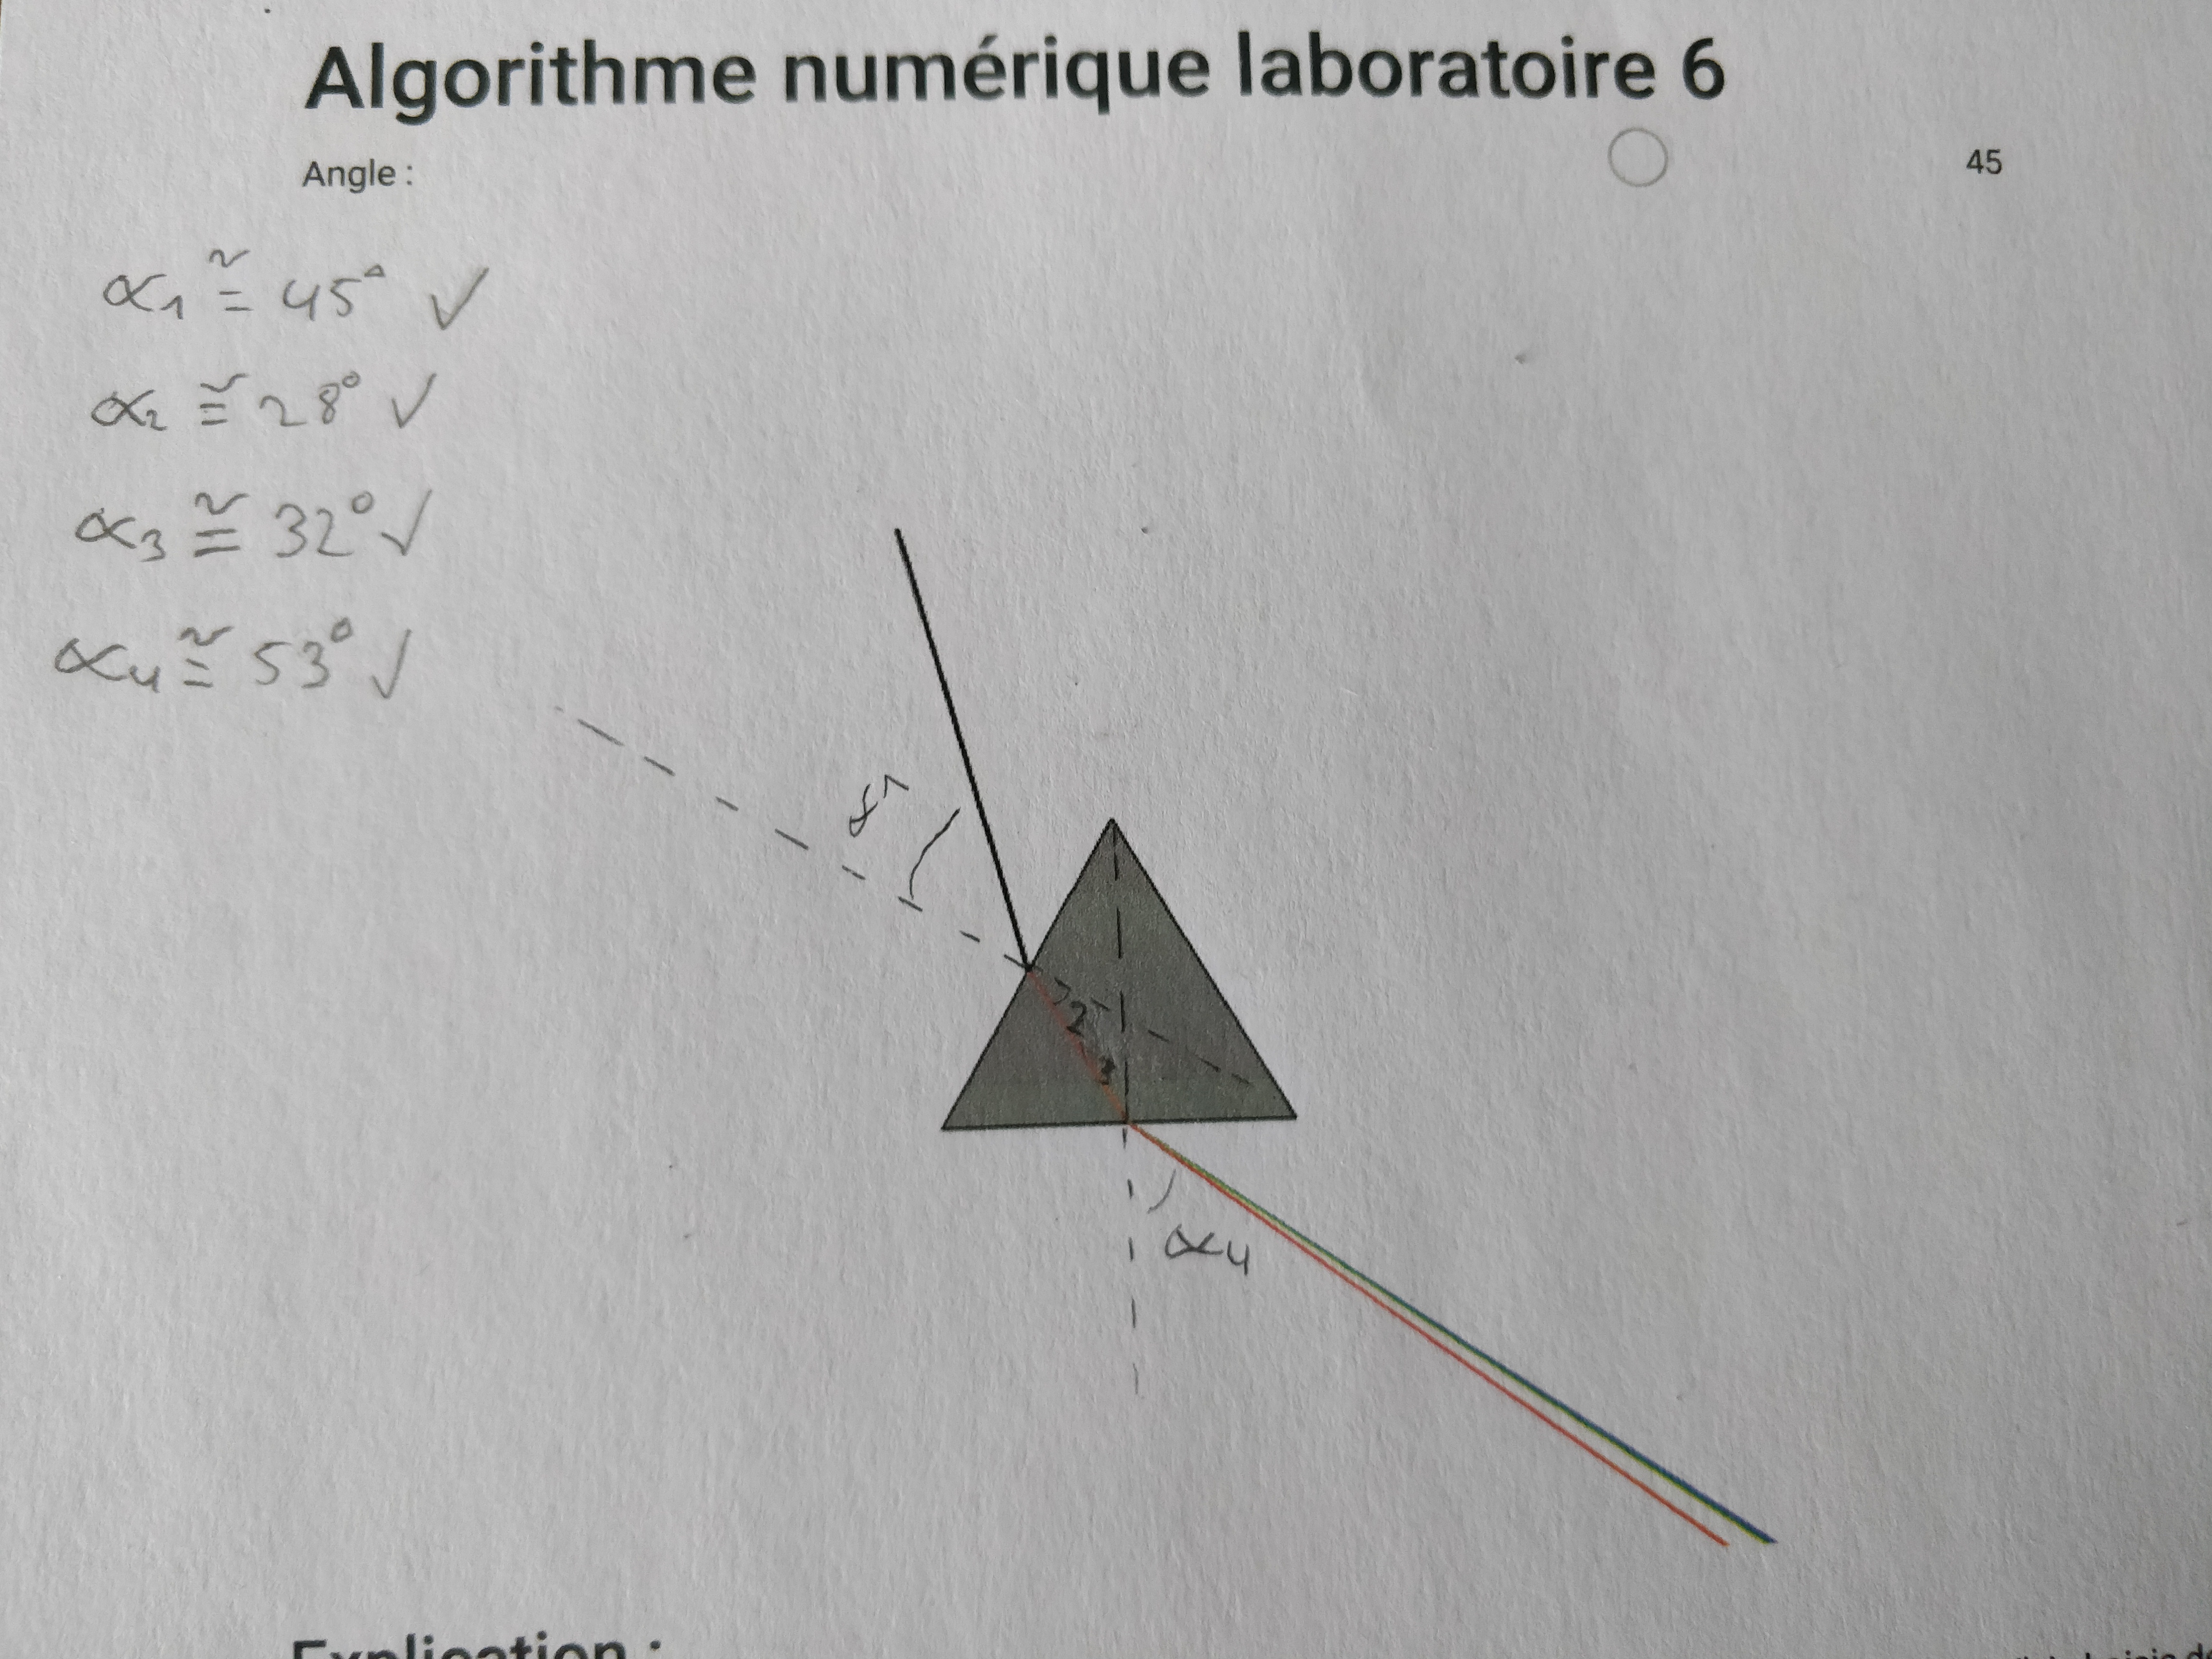 Algorithme numérique laboratoire 6
Angle :
45
α1 ≅ 45° ✓
α2 ≅ 28° ✓
α3 ≅ 32° ✓
α4 ≅ 53° ✓
α1
2
3
α4
Explication :